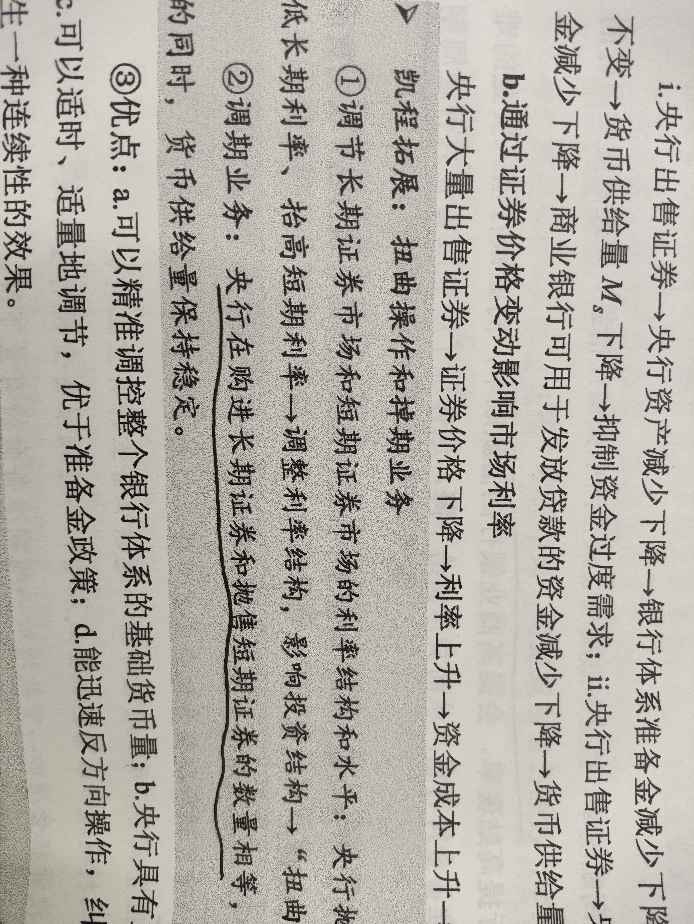 i.央行出售证券→央行资产减少下降→银行体系准备金减少下降
不变→货币供给量Ms下降→抑制资金过度需求；ii.央行出售证券→
金减少下降→商业银行可用于发放贷款的资金减少下降→货币供给量
b.通过证券价格变动影响市场利率
央行大量出售证券→证券价格下降→利率上升→资金成本上升→
➢ 凯程拓展：扭曲操作和掉期业务
①调节长期证券市场和短期证券市场的利率结构和水平：央行抛
低长期利率、抬高短期利率→调整利率结构，影响投资结构→“扭曲
②调期业务：央行在购进长期证券和抛售短期证券的数量相等，
的同时，货币供给量保持稳定。
③优点：a.可以精准调控整个银行体系的基础货币量；b.央行具有
c.可以适时、适量地调节，优于准备金政策；d.能迅速反方向操作，纠
生一种连续性的效果。